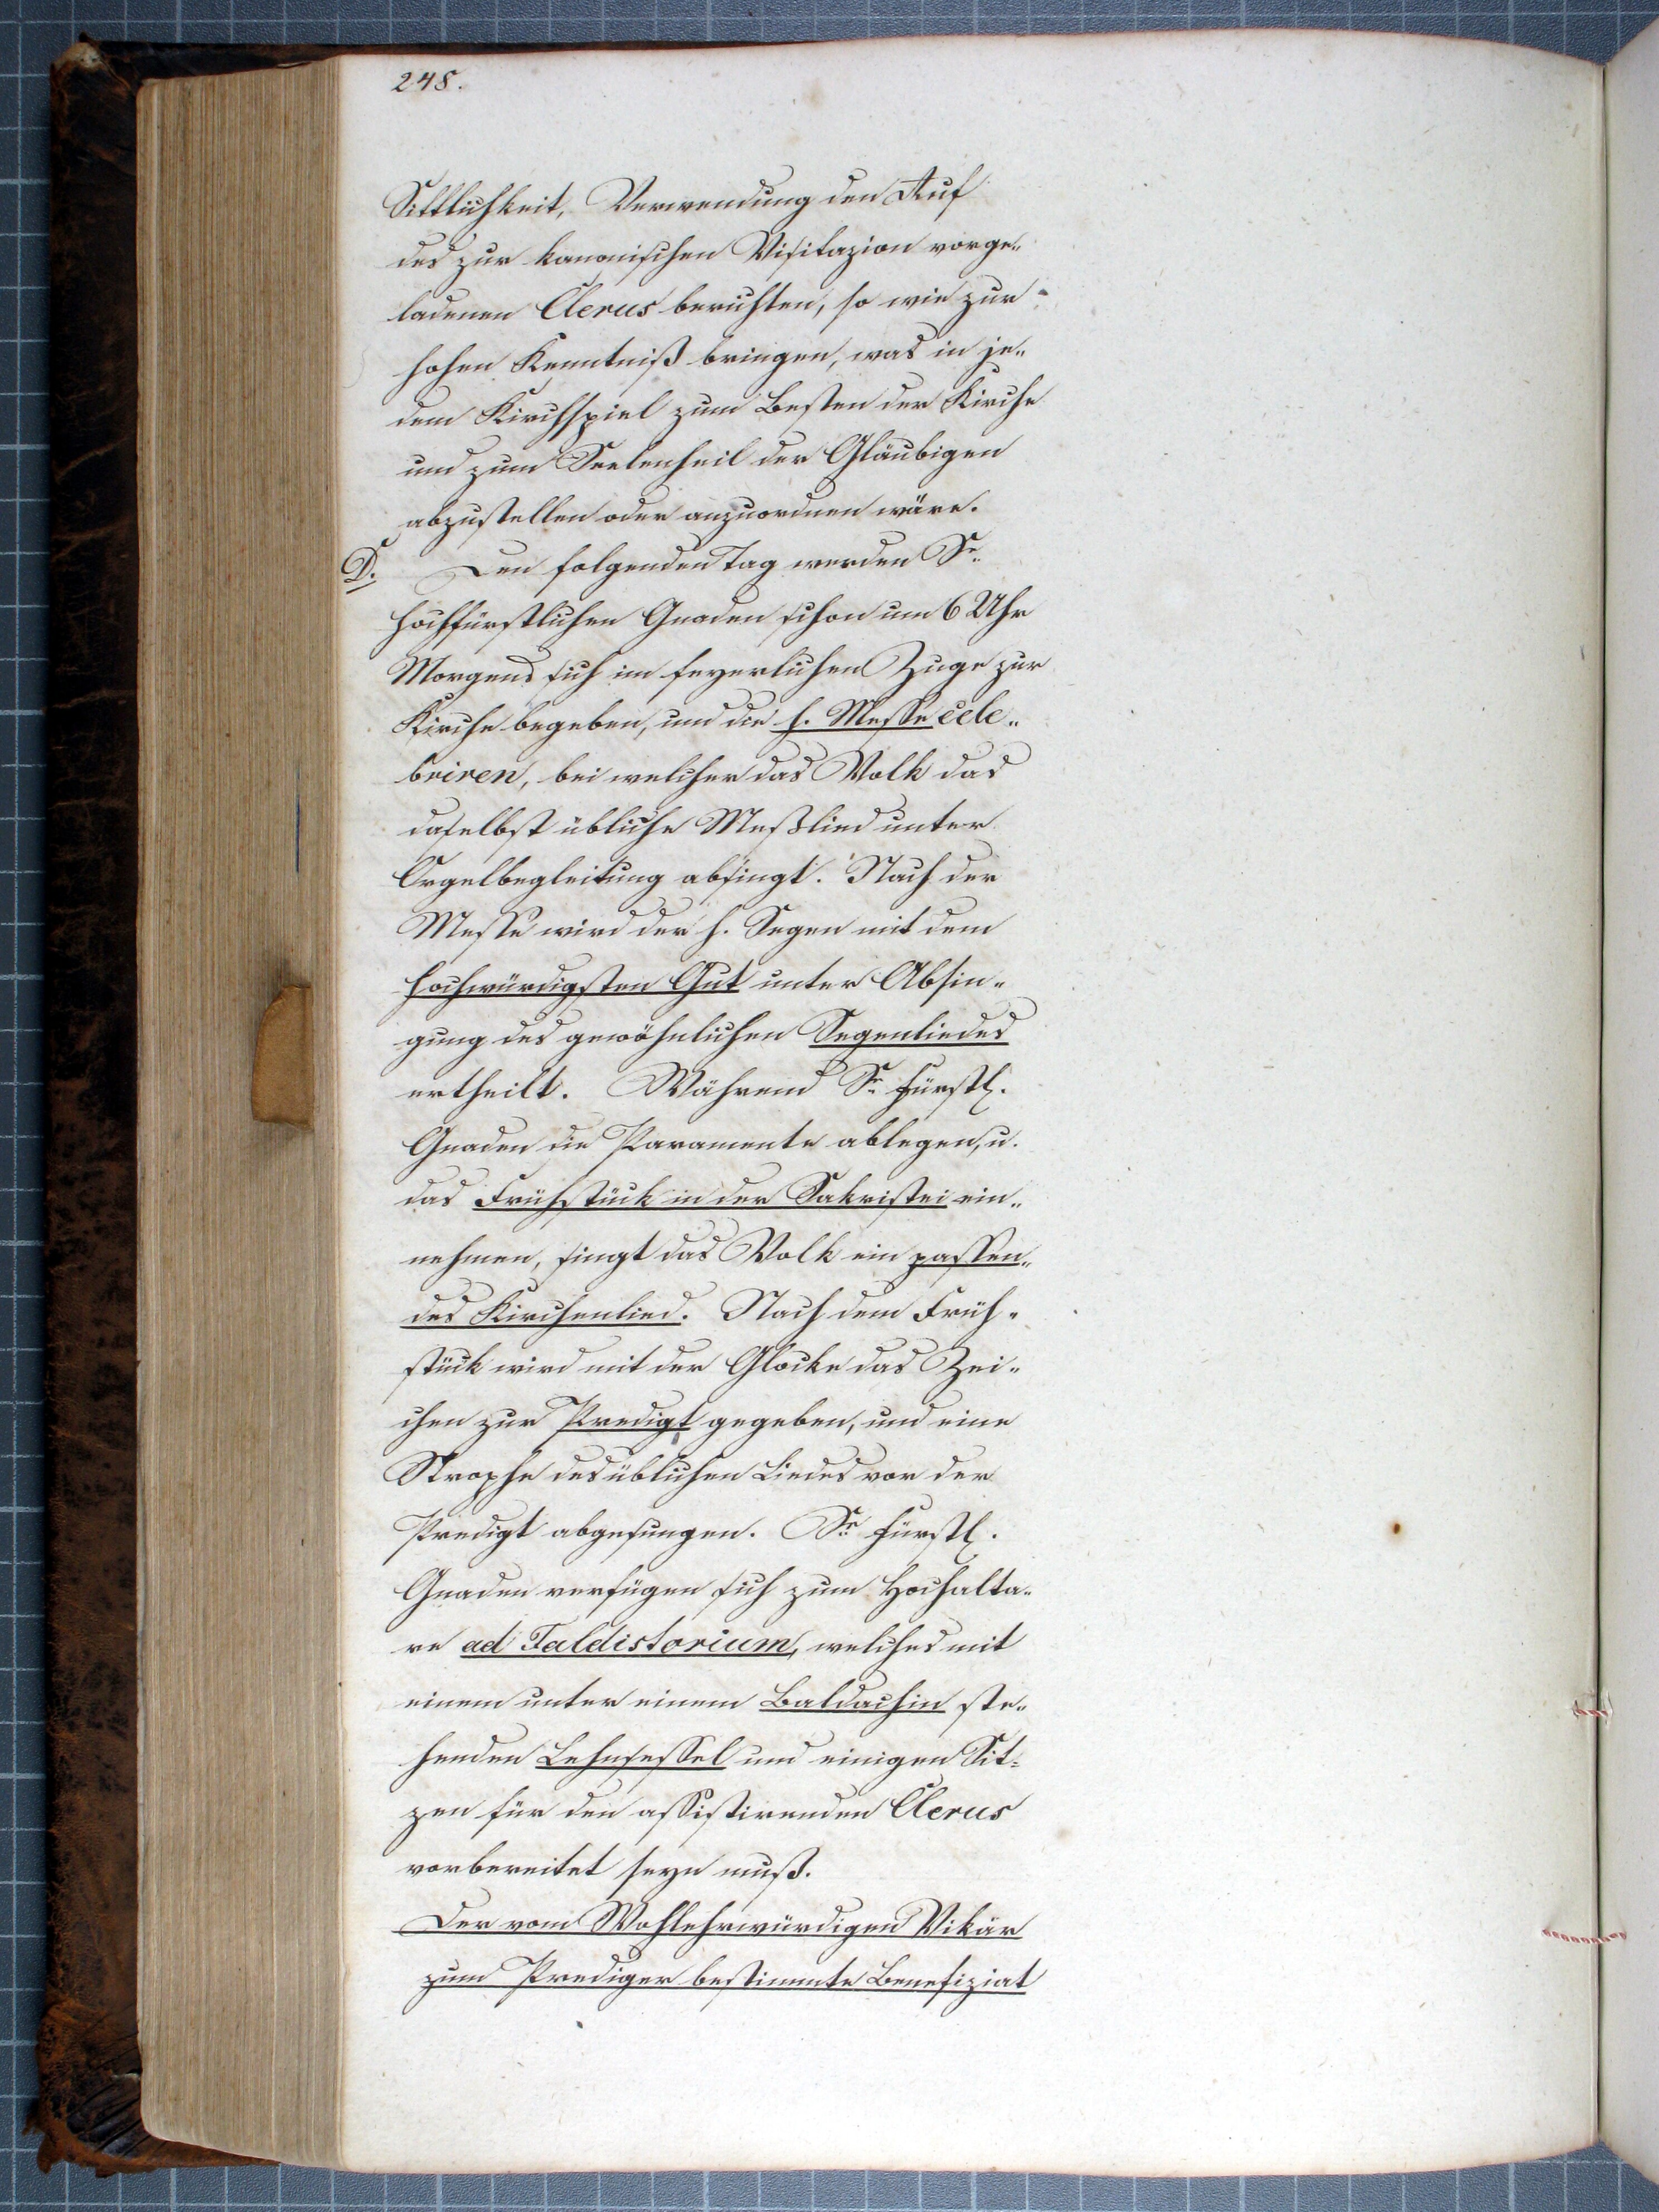 248.
Sittlichkeit, Verwendung den Ruf
des zur kanonischen Visitazion vorge„
ladenen Clerus berichten, so wie zur
hohen Kenntniß bringen, was in je„
dem Kirchspiel zum Besten der Kirche
und zum Seelenheil der Gläubigen
abzustellen oder anzuordnen wäre.
D. Den folgenden Tag werden Sr
hochfürstlichen Gnaden schon um 6 Uhr
Morgens sich im feyerlichen Zuge zur
Kirche begeben, und die h. Messe cele„
briren, bei welcher das Volk das
daselbst übliche Meßlied unter
Orgelbegleitung absingt. Nach der
Messe wird der h. Segen mit dem
hochwürdigsten Gut unter Absin„
gung des gewöhnlichen Segenliedes
ertheilt. Während Sr fürstl.
Gnaden die Paramente ablegen, u.
das Frühstück in der Sakristei ein„
nehmen, singt das Volk ein passen„
des Kirchenlied. Nach dem Früh„
stück wird mit der Glocke das Zei„
chen zur Predigt gegeben, und eine
Strophe des üblichen Liedes vor der
Predigt abgesungen. Sr fürstl.
Gnaden verfügen sich zum Hochalta„
re ad Faldistorium, welches mit
einem unter einem Baldachin ste„
henden Lehnsessel und einigen Sit„
zen für den assistirenden Clerus
vorbereitet seyn muß.
Der vom Wohlehrwürdigen Vikär
zum Prediger bestimmte Benefiziat